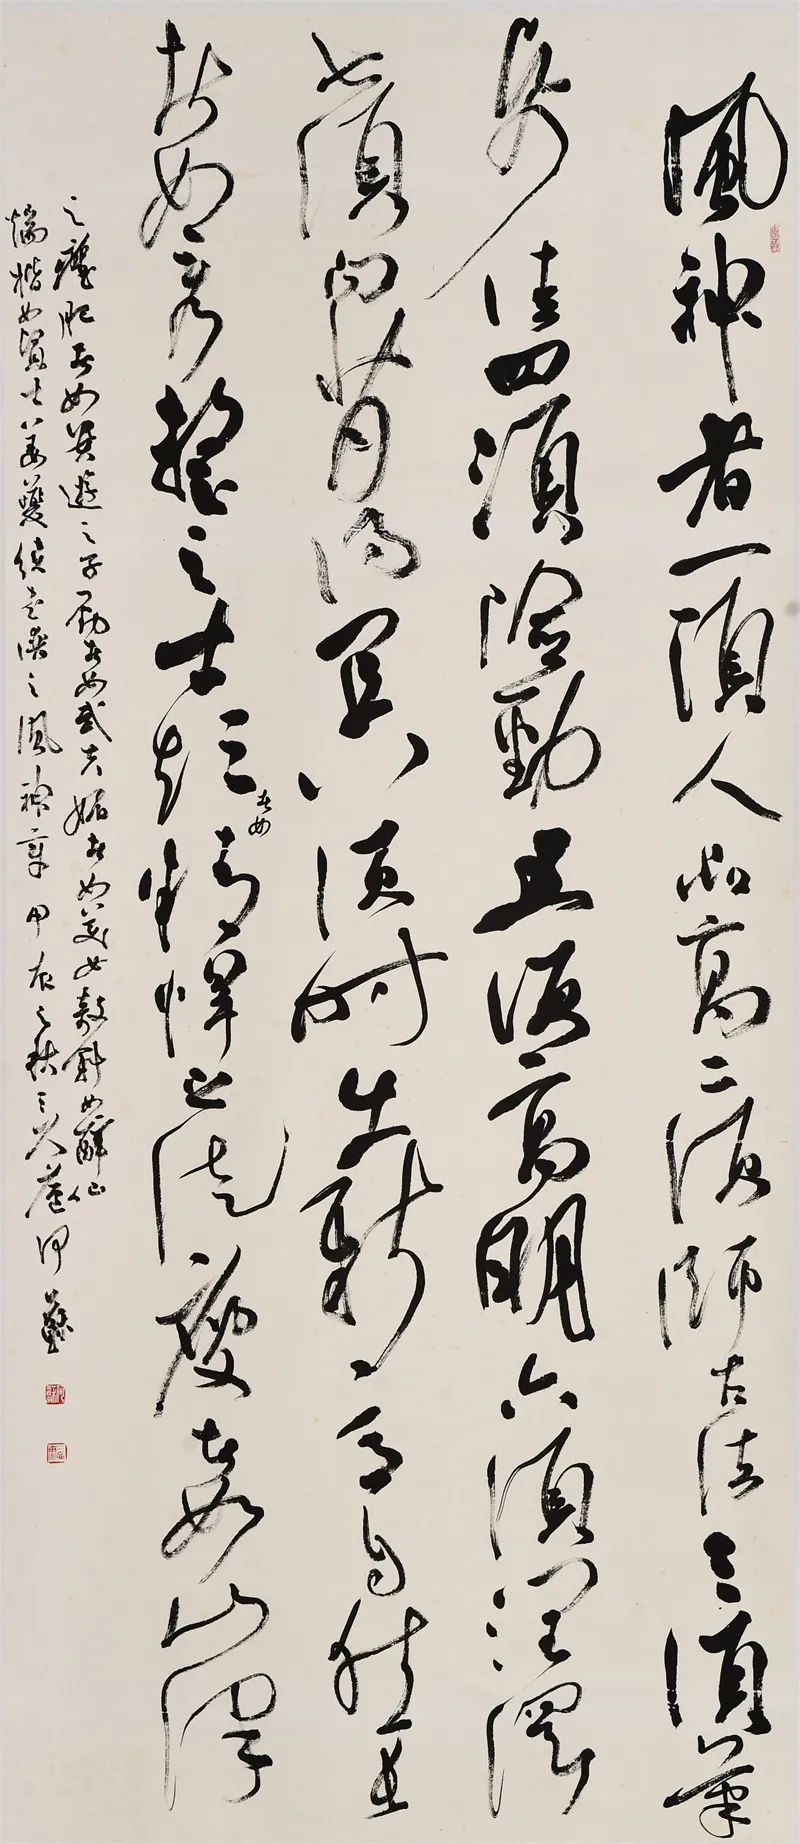 風神者一須人品高二須師古法三須筆
紙佳四須險勁五須高明六須潤澤
七須向背得宜八須時出新意自然長
者如秀整之士短者如精悍之徒瘦者如山澤
之癯肥者如貴遊之子勁者如武夫媚者如美女欹斜如醉仙
端楷如賢士姜夔續書譜之風神章甲辰之秋